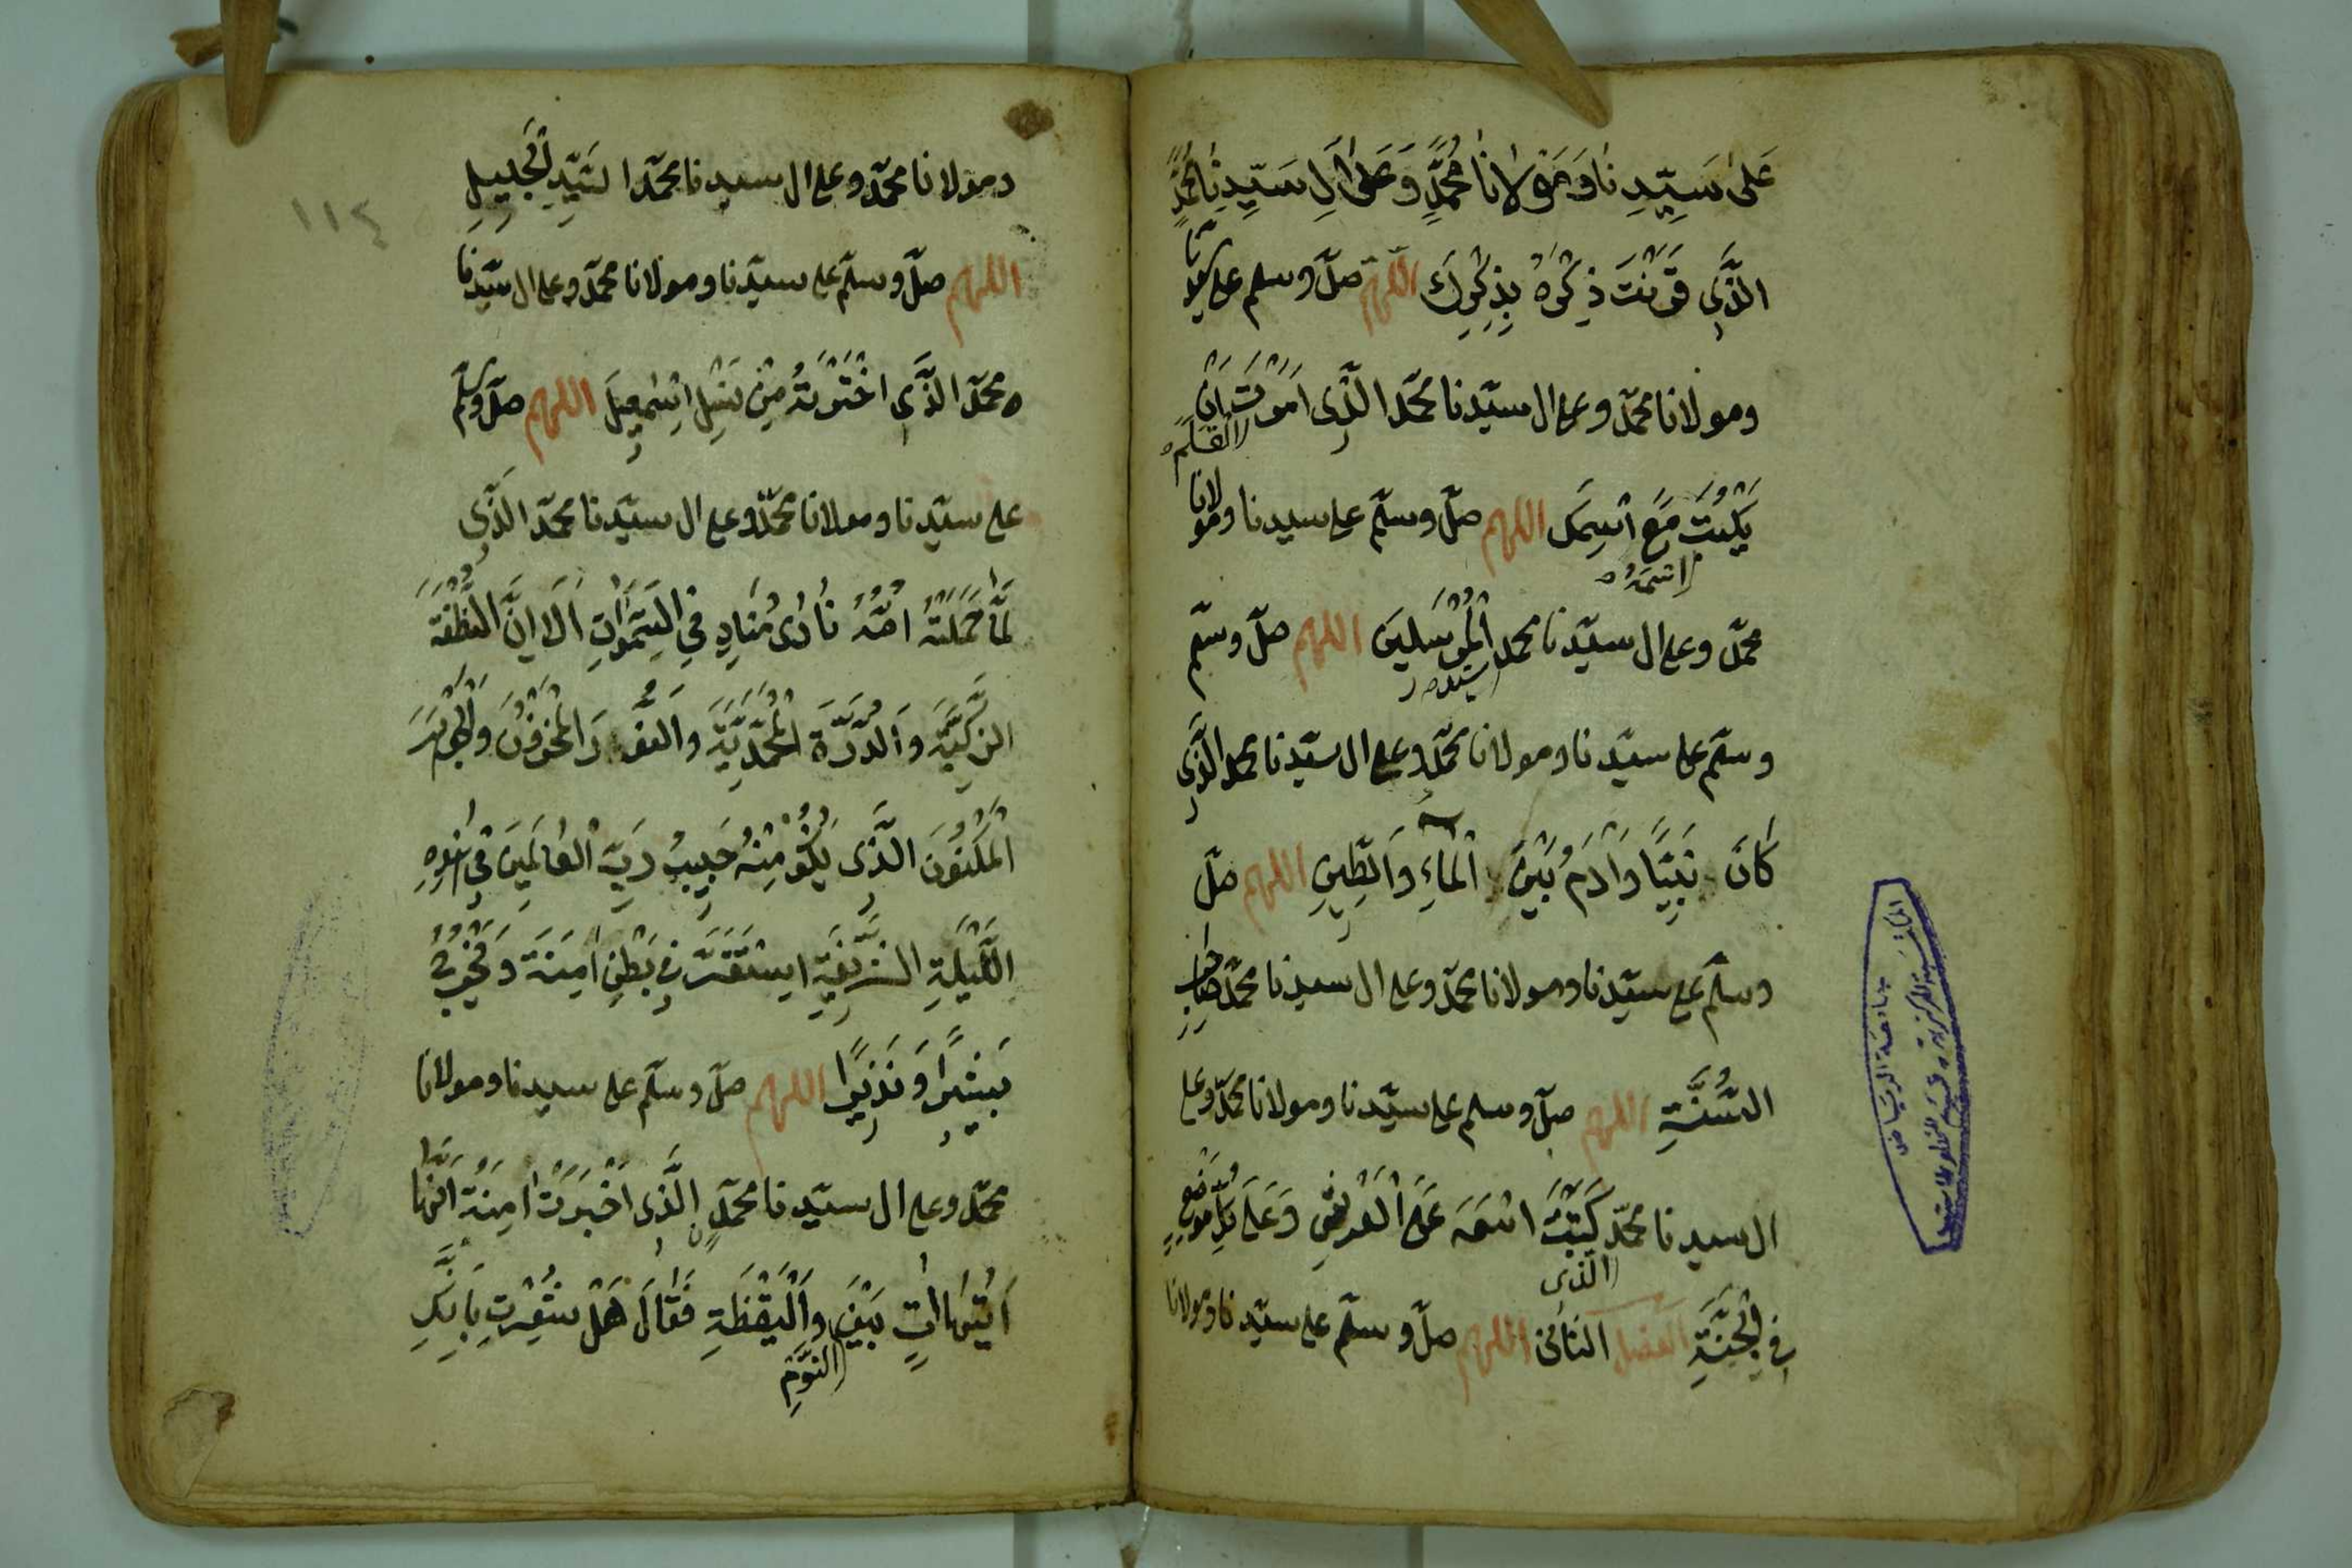 عَلىٰ سَيِّدِنَا وَمَوْلَانَا مُحَمَّدٍ وَعَلىٰ اٰلِ سَيِّدِنَا مُحَمَّدٍ
الَّذِي قَرَنْتَ ذِكْرَهُ بِذِكْرِكَ اللهم صلّ وسلم على سيدنا
ومولانا محمّد وعلى ال سيّدنا محمّد الَّذِى اَمَرْتَ اَنْ
القلم
يَكْتُبَ مَعَ اسْمِكَ اللهم صلّ وسلّم على سيدنا ومولانا
اسْمَهُ
محمّد وعلى ال سيّدنا محمد الْمُرْسَلِينَ اللهم صلّ وسلّم
سيد
وسلّم على سيّدنا ومولانا محمّد وعلى ال سيّدنا محمد الَّذِى
كَانَ نَبِيًّا وَاٰدَمُ بَيْنَ الْمَاءِ وَالطِّينِ اللهم صلّ
وسلّم على سيّدنا ومولانا محمّد وعلى ال سيدنا محمّد صَاحِبِ
السُّنَّةِ اللهم صلّ وسلم على سيّدنا ومولانا محمّد وعلى
ال سيدنا محمّد كَتَبْتَ اسْمَهُ عَلَى الْعَرْشِ وَعَلَى كُلِّ مَوْضِعٍ
الذى
فِي الْجَنَّةِ الفصل الثانى اللهم صلّ وسلّم على سيّدنا ومولانا
١١٤
ومولانا محمّد وعلى ال سيدنا محمّد السَّيِّدِ الْجَلِيلِ
اللهم صلّ وسلّم على سيّدنا ومولانا محمّد وعلى ال سيّدنا
محمّد الَّذِى اخْتَرْتَهُ مِنْ نَسْلِ اِسْمٰعِيلَ اللهم صلّ وسلّم
على سيّدنا ومولانا محمّد وعلى ال سيّدنا محمّد الَّذِى
لَمَّا حَمَلَتْهُ اُمُّهُ نَادٰى مُنَادٍ فِي السَّمٰوَاتِ اَلَا اِنَّ النُّطْفَةَ
الزَّكِيَّةَ وَالدُّرَّةَ الْمُحَمَّدِيَّةَ وَالْمَخْزُونَ وَالْجَوْهَرَ
الْمَكْنُونَ الَّذِى يَكُونُ مِنْهُ حَبِيبُ رَبِّ الْعَالَمِينَ فِي
اللَّيْلَةِ الشَّرِيفَةِ اسْتَقَرَّتْ فِي بَطْنِ اٰمِنَةَ وَيَخْرُجُ
بَشِيرًا وَنَذِيرًا اللهم صلّ وسلّم على سيدنا ومولانا
محمّد وعلى ال سيّدنا محمّدٍ الَّذِى اَخْبَرَتْ اٰمِنَةُ اَنَّهَا
اَتٰىهَا اٰتٍ بَيْنَ وَالْيَقَظَةِ فَقَالَ هَلْ شَعِرْتِ بِاَنَّكِ
النَّوْمِ
جامعة الرياض
المكتبة المركزية قسم المخطوطات